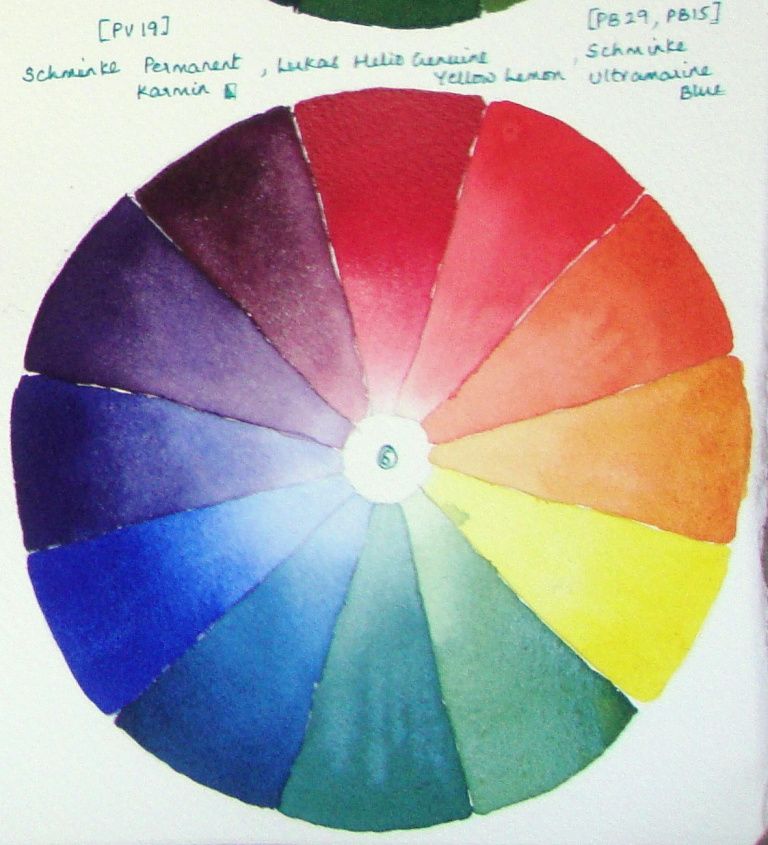 [PV 19]
[PB 29, PB15]
Schminke Permanent Karmin
, Lukas Helio Genuine Yellow Lemon
, Schminke Ultramarine Blue
6